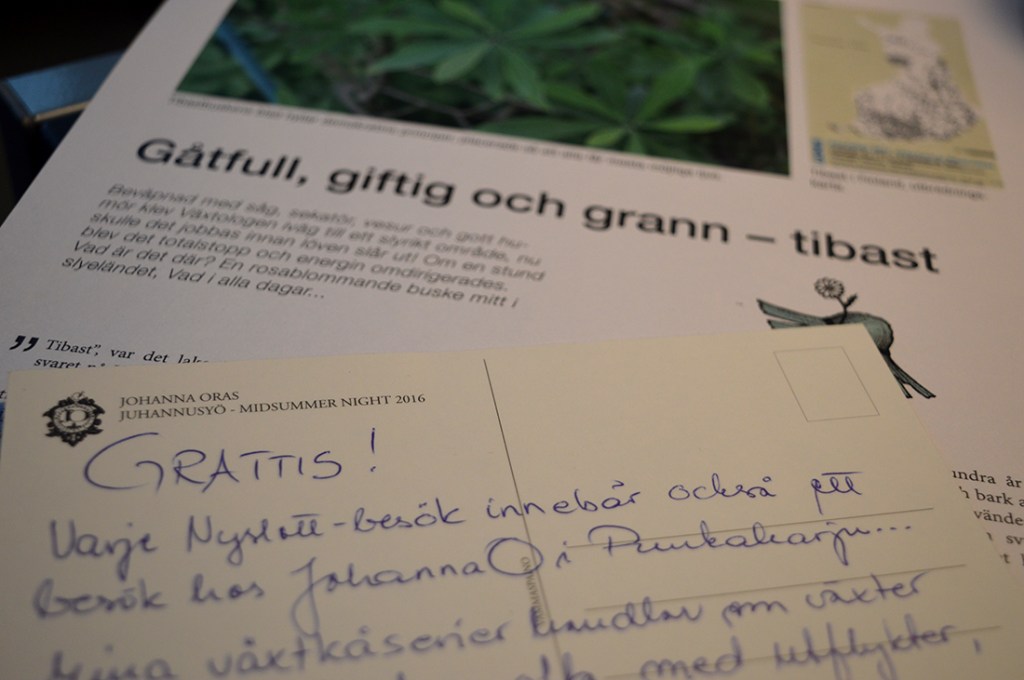 Gåtfull, giftig och grann – tibast
Beväpnad med såg, sekatör, vesur och gott hu-
mör klev Växtologen iväg till ett slyrikt område, nu
skulle det jobbas innan löven slår ut! Om en stund
blev det totalstopp och energin omdirigerades.
Vad är det där? En rosablommande buske mitt i
slyeländet, Vad i alla dagar...
”Tibast”, var det
svaret
JOHANNA ORAS
JUHANNUSYÖ - MIDSUMMER NIGHT 2016
GRATTIS!
Varje Nyslott-besök innebär också ett
besök hos JohannaO i Punkaharju...
Mina växtkåserier handlar om växter
med utflykter,
ndra år
bark
vände